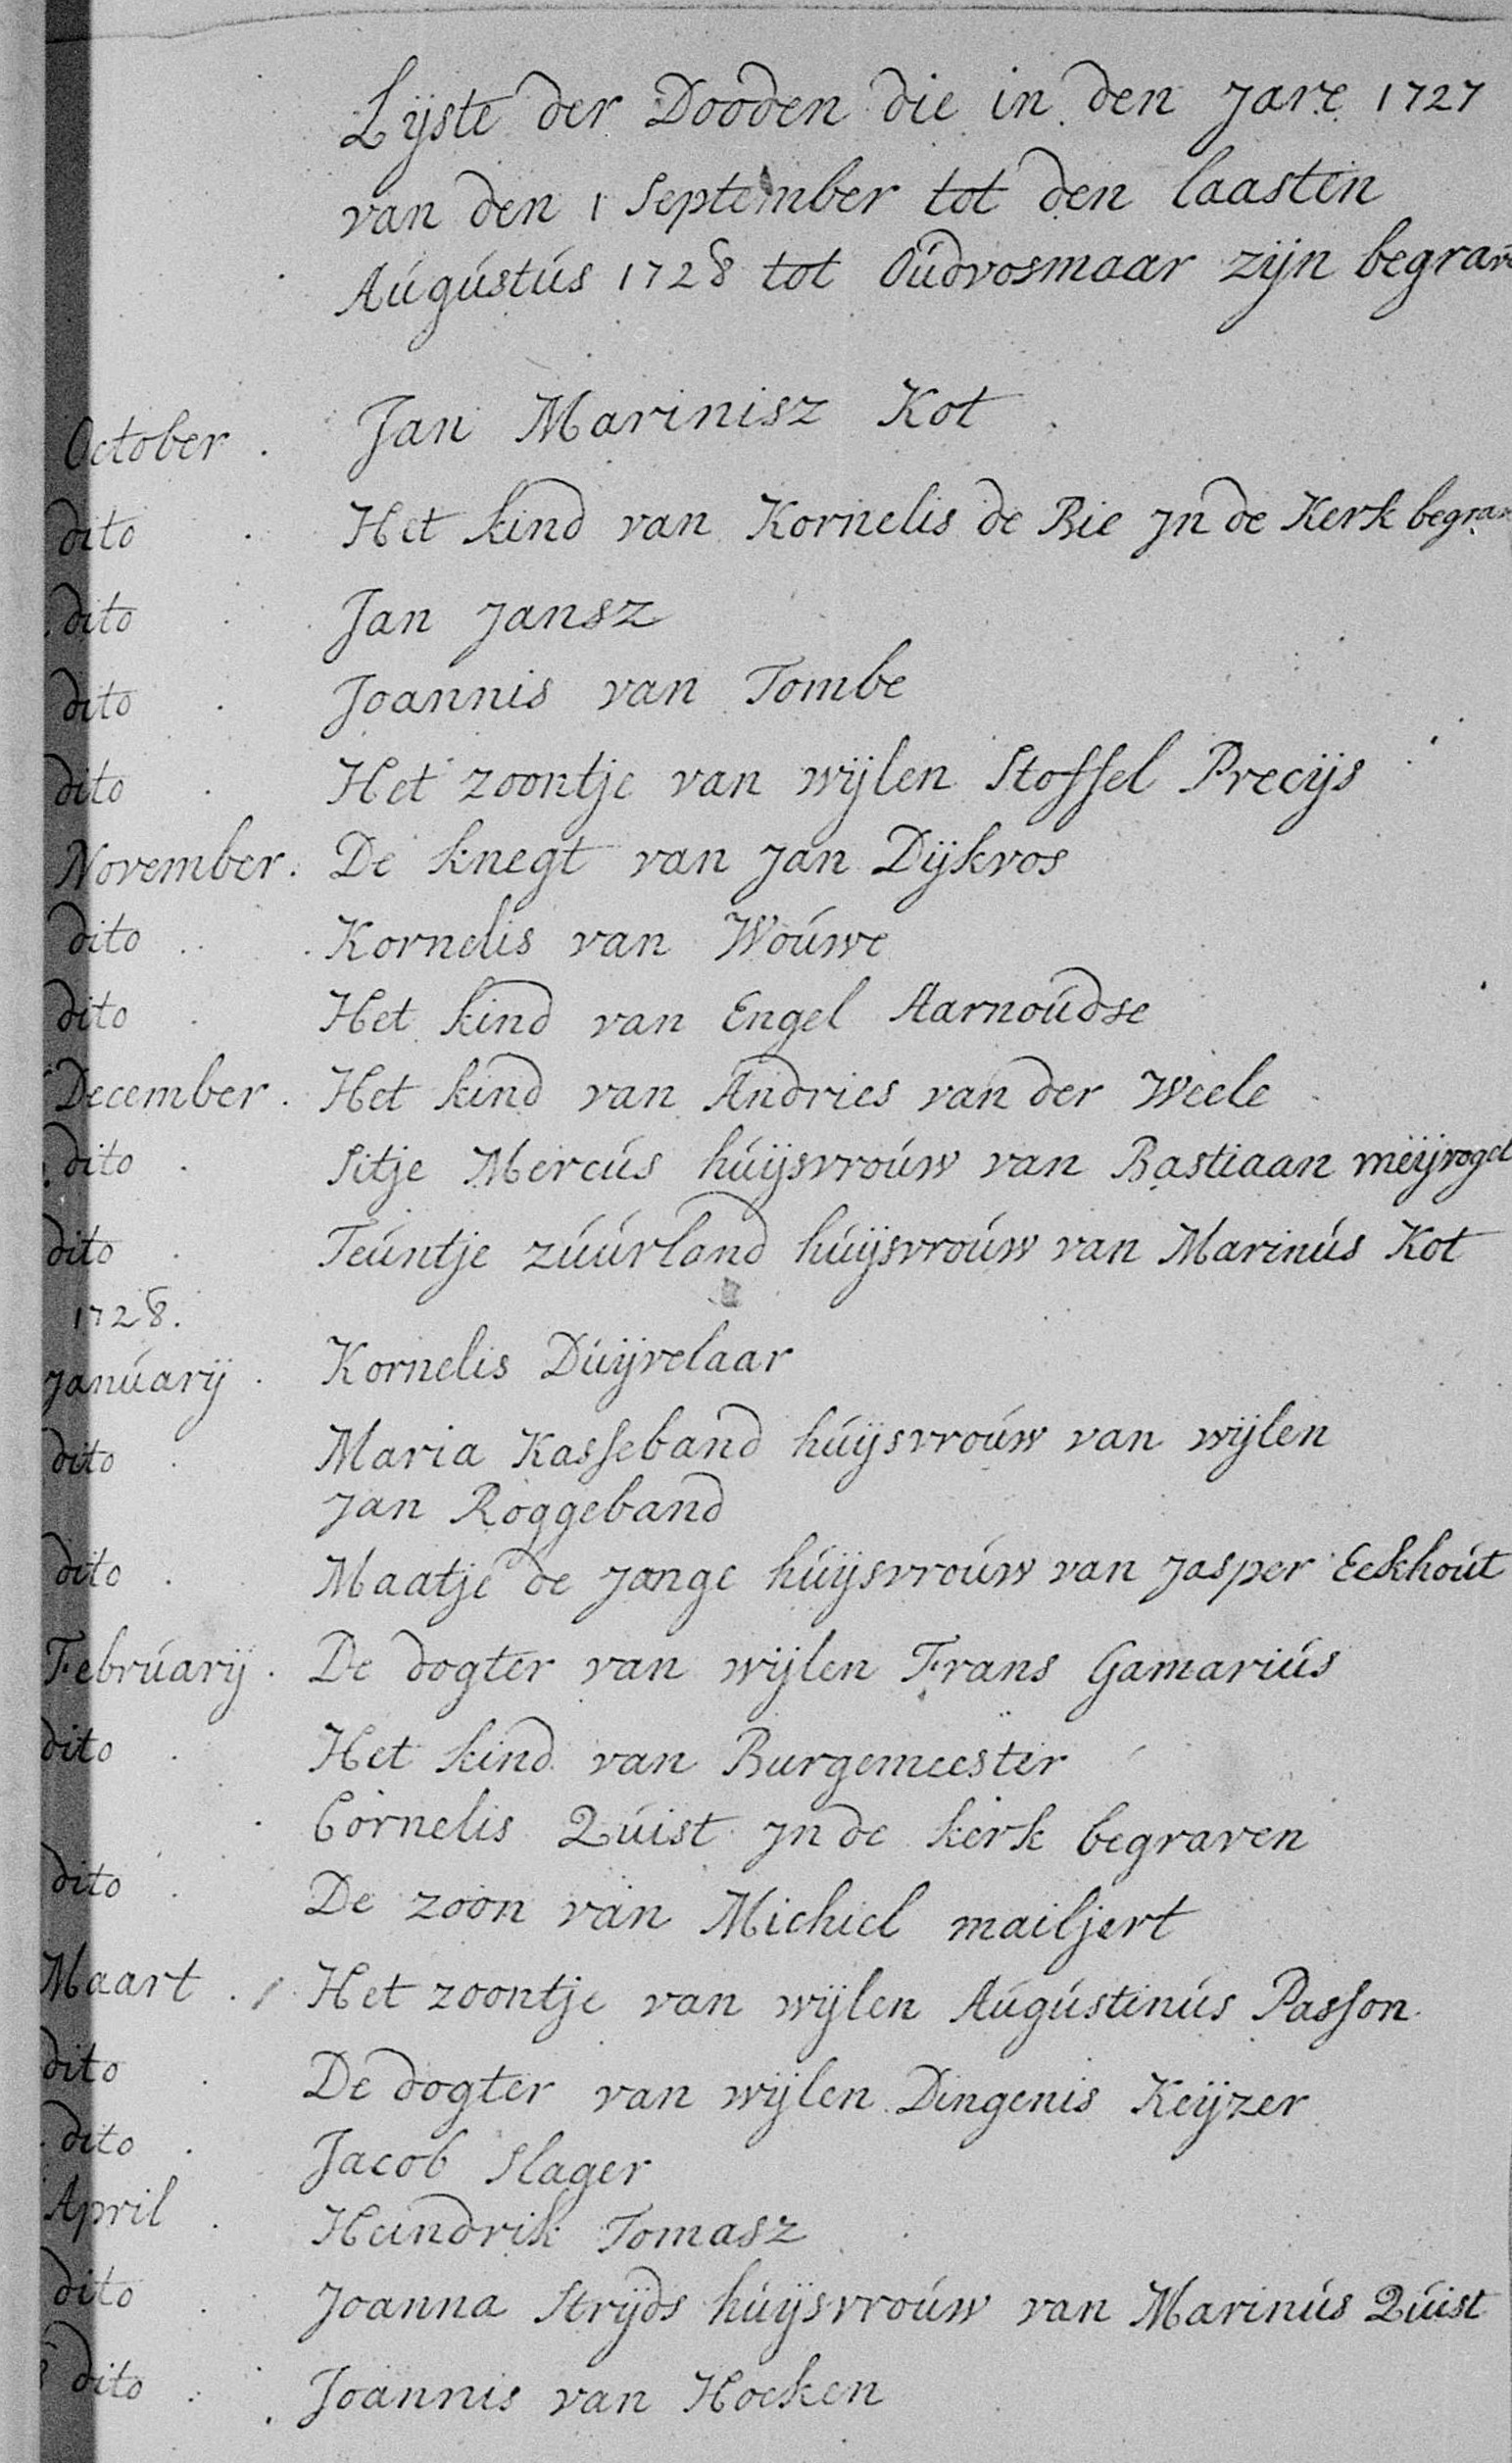 Lijste der Dooden die in den Jare 1727
van den 1 September tot den laasten
Augustus 1728 tot Oudvosmaar zijn begrav
October . Jan Marinisz Kot
dito . Het kind van Kornelis de Rie Jn de Kerk begrav
dito . Jan Jansz
dito . Joannis van Tombe
dito . Het zoontje van wijlen Stoffel Precijs
November . De knegt van Jan Dijkvos
dito . Kornelis van Wouwe
dito . Het kind van Engel Aarnoudse
December . Het kind van Andries van der Weele
dito . Sitje Mercus huijsvrouw van Bastiaan meijvogel
dito . Teuntje zuurland huijsvrouw van Marinus Kot
1728.
Januarij . Kornelis Duijvelaar
dito . Maria Kasseband huijsvrouw van wijlen
Jan Roggeband
dito . Maatje de Jonge huijsvrouw van Jasper Eekhout
Februarij . De dogter van wijlen Frans Gamarius
dito . Het kind van Burgemeester
Cornelis Quist Jn de kerk begraven
dito . De zoon van Michiel mailjert
Maart . Het zoontje van wijlen Augustinus Passon
dito . De dogter van wijlen Dingenis Keijzer
dito . Jacob Slager
April . Heindrik Tomasz
dito . Joanna Strijds huijsvrouw van Marinus Quist
dito . Joannis van Hoeken